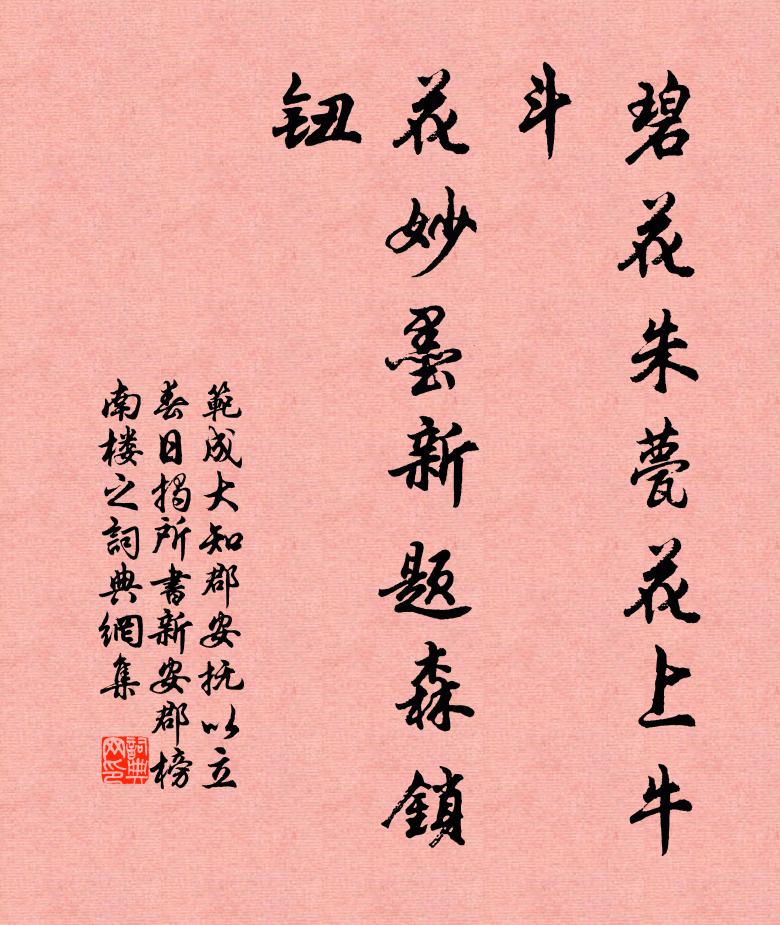 碧花朱甍花上牛
斗
花妙墨新题森鎖
鈕
範成大知郡安抚以立
春日揭所書新安郡榜
南楼之詞典網集
詞典
网印